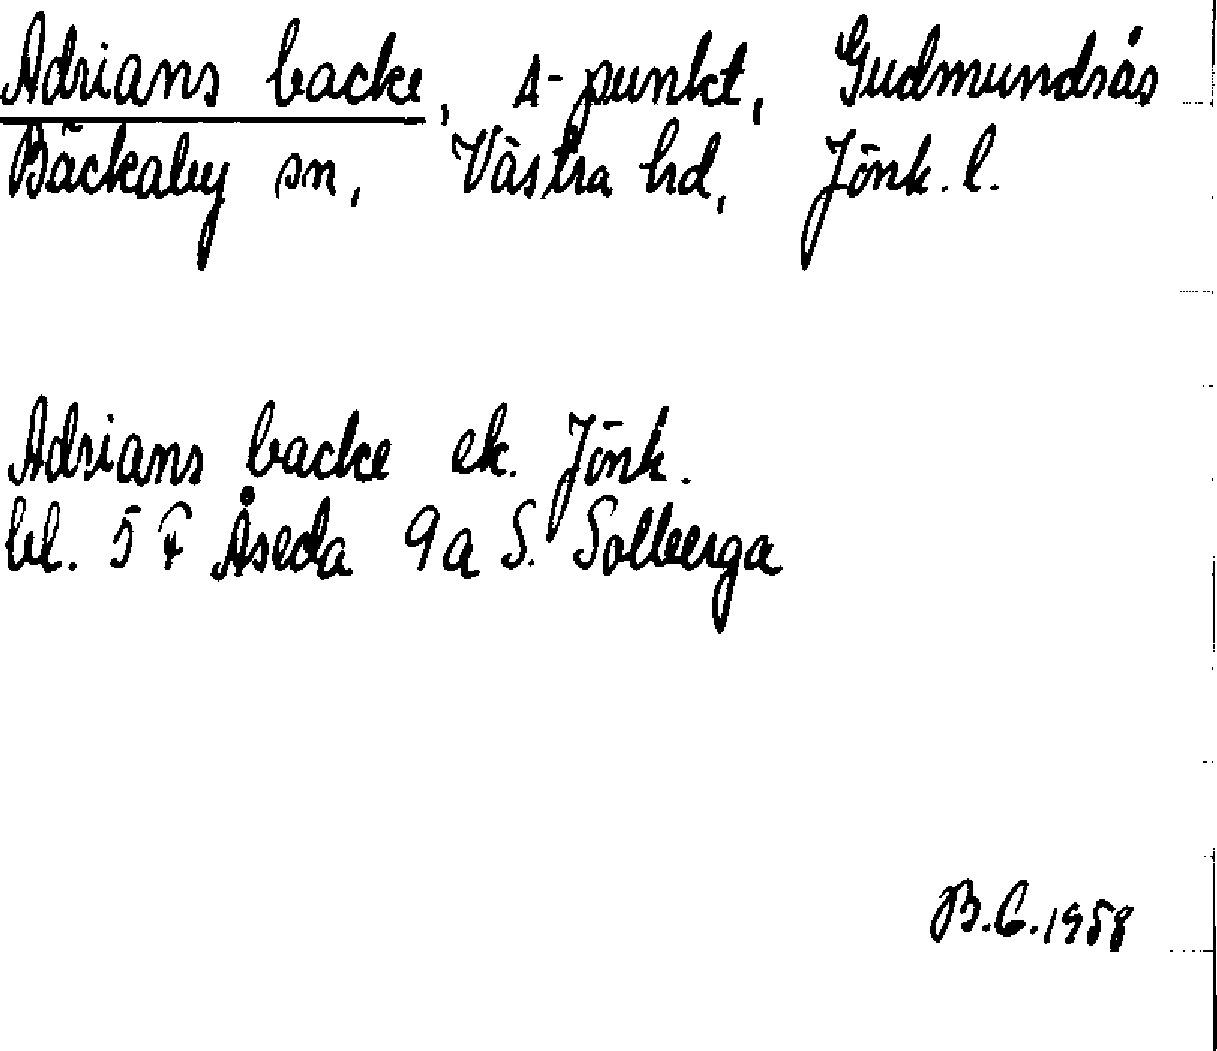 Adrians backe, s-punkt, Gudmundsås
Bäckaby sn, Västra hd, Jönk. l.
Adrians backe ek. Jönk.
bl. 5 F Åseda 9a S. Solberga
B.C. 1958